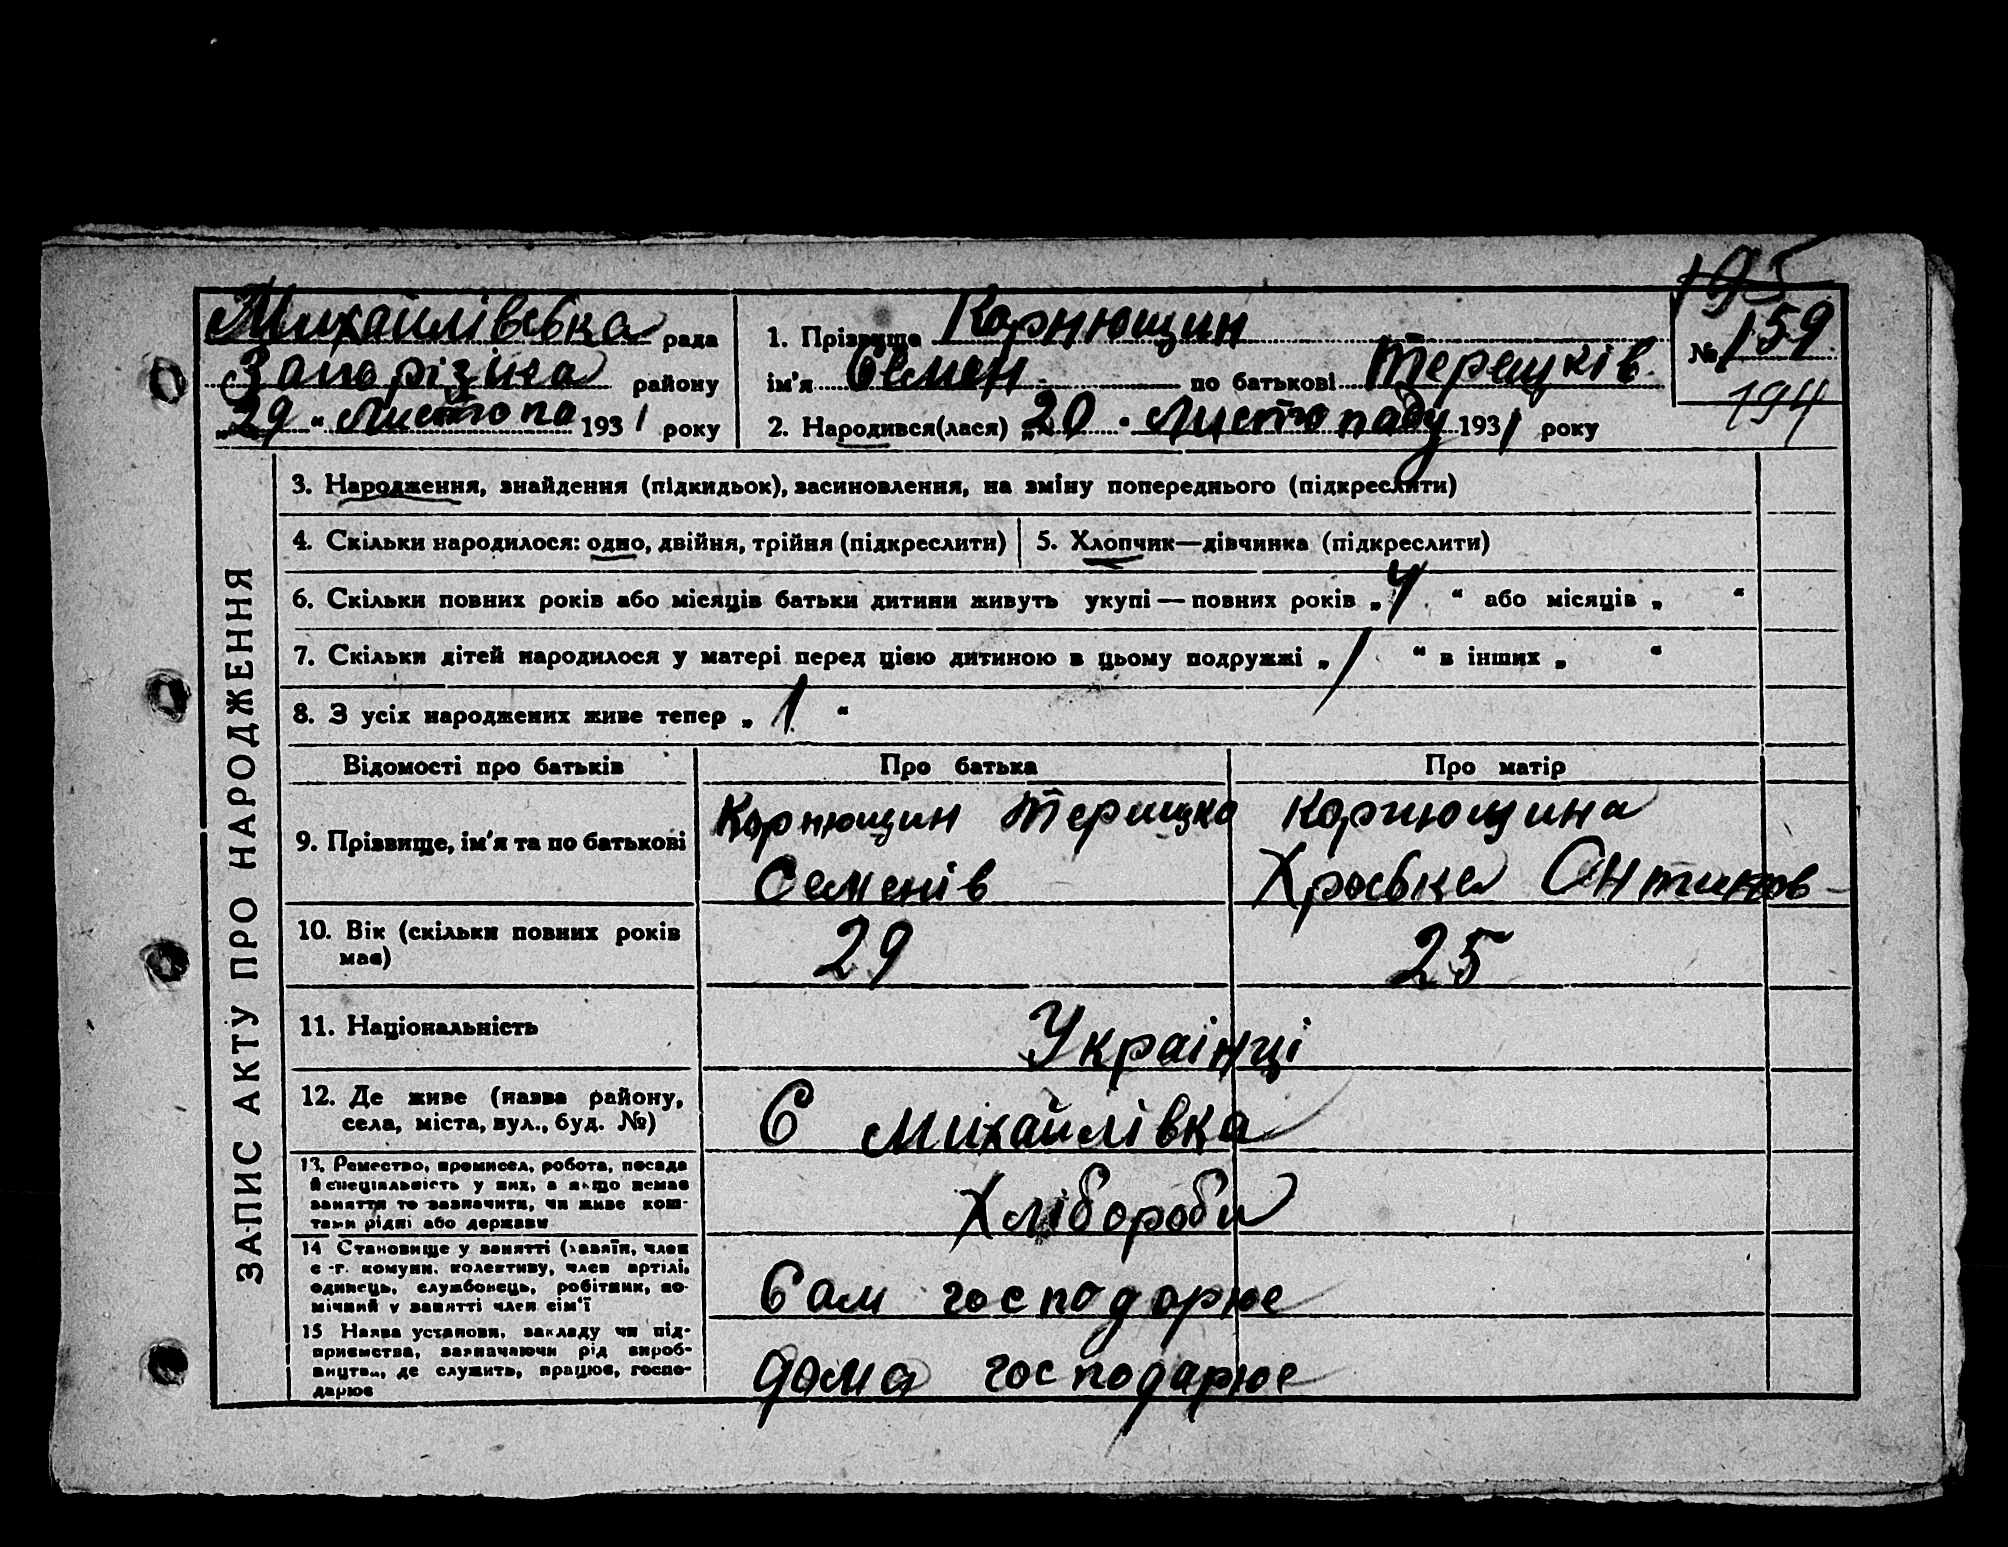 195
Михайлівська рада
Запорізька району
„29“ Листопа 1931 року
1. Прізвище Корнющин
ім'я Семен по батькові Терешків
2. Народився(лася) „20“ Листопаду 1931 року
№ 159
194
ЗАПИС АКТУ ПРО НАРОДЖЕННЯ
3. Народження, знайдення (підкидьок), засиновлення, на зміну попереднього (підкреслити)
4. Скільки народилося: одно, двійня, трійня (підкреслити)
5. Хлопчик—дівчинка (підкреслити)
6. Скільки повних років або місяців батьки дитини живуть укупі — повних років „4“ або місяців „ “
7. Скільки дітей народилося у матері перед цією дитиною в цьому подружжі „1“ в інших „ “
8. З усіх народжених живе тепер „1“
Відомості про батьків Про батька Про матір
9. Прізвище, ім'я та по батькові
Корнющин Терищко
Семенів
Корнющина
10. Вік (скільки повних років
має)
29
25
11. Національність
Українці
12. Де живе (назва району,
села, міста, вул., буд. №)
С Михайлівка
13. Ремество, промисел, робота, посада
й спеціяльність у них, а якщо немає
заняття то зазначити, чи живе кош-
тами рідні або держави
Хлібороби
14 Становище у занятті (хазяїн, член
с.-г. комуни, колективу, член артілі,
одинець, службовець, робітник, по-
мічний у занятті член сім'ї
Сам господарює
15 Назва установи, закладу чи під-
приємства, зазначаючи рід вироб-
ництва, де служить, працює, госпо-
дарює
дома господарює